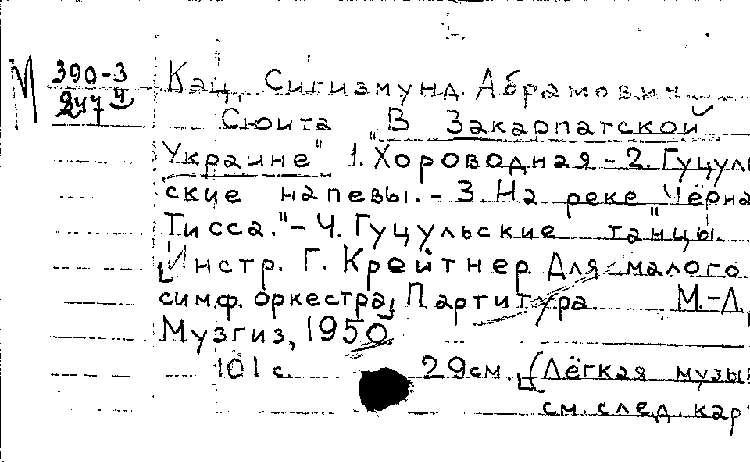 М 390-3 Кац, Сигизмунд Абрамович
247
Сюита "В Закарпатской
Украине" 1. Хороводная - 2. Гуцуль
ские напевы. - 3. На реке "Чёрна
Тисса." - 4. Гуцульские танцы.
Инстр. Г. Крейтнер Для малого
симф. оркестра, Партитура М.-Л,
Музгиз, 1950
101 с. 29см. [Лёгкая музы
см. след. кар